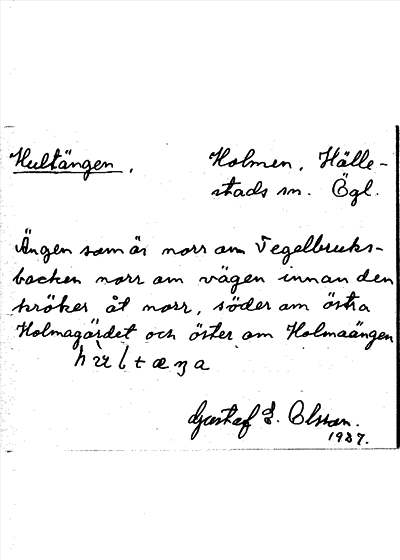 Hultängen. Holmen, Hälle-
stads sn. Ögl.
Ängen som är norr om Tegelbruks-
backen norr om vägen innan den
kröker åt norr, söder om östra
Holmagärdet och öster om Holmaängen
Gustaf E. Olsson.
1927.